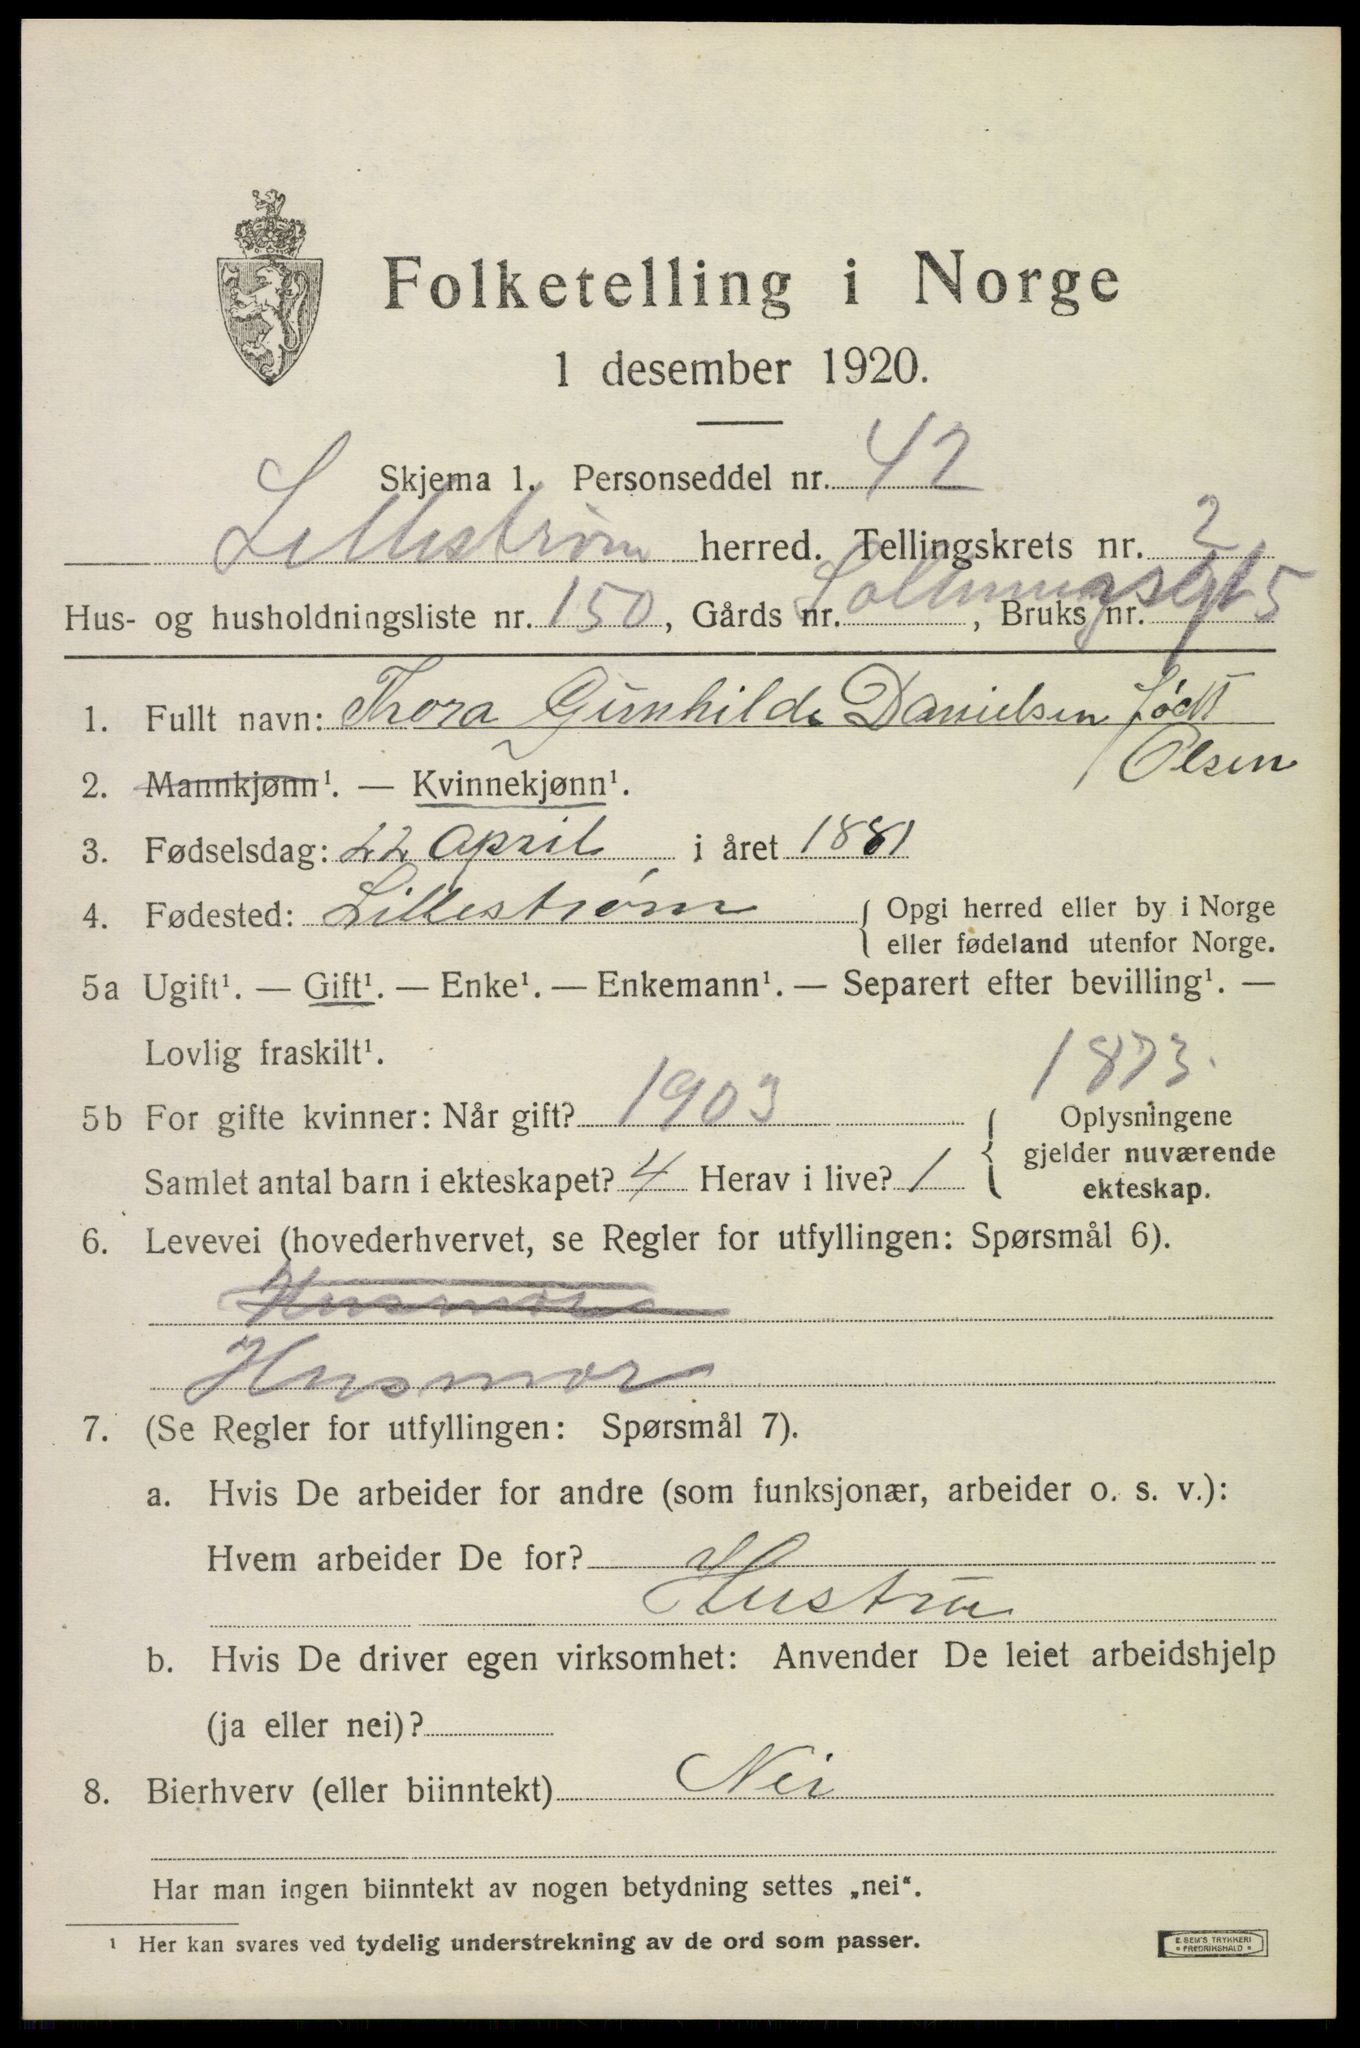 Folketelling i Norge
1 desember 1920.
Skjema 1. Personseddel nr. 42
Lillestrøm herred. Tellingskrets nr. 2
Hus- og husholdningsliste nr. 150, Gårds nr. , Bruks nr. 5
1. Fullt navn: Thora Gunhilde Danielsen født
Olsen
2. Mannkjønn¹. — Kvinnekjønn¹.
3. Fødselsdag: 22 april i året 1881
4. Fødested: Lillestrøm { Opgi herred eller by i Norge
eller fødeland utenfor Norge.
5a Ugift¹. — Gift¹. — Enke¹. — Enkemann¹. — Separert efter bevilling¹. —
Lovlig fraskilt¹.
1873.
5b For gifte kvinner: Når gift? 1903
Samlet antal barn i ekteskapet? 4 Herav i live? 1
{ Oplysningene
gjelder nuværende
ekteskap.
6. Levevei (hovederhvervet, se Regler for utfyllingen: Spørsmål 6).
Husmor
Husmor
7. (Se Regler for utfyllingen: Spørsmål 7).
a. Hvis De arbeider for andre (som funksjonær, arbeider o. s. v.):
Hvem arbeider De for?
Hustru
b. Hvis De driver egen virksomhet: Anvender De leiet arbeidshjelp
(ja eller nei)?
8. Bierhverv (eller biinntekt) Nei
Har man ingen biinntekt av nogen betydning settes „nei“.
¹ Her kan svares ved tydelig understrekning av de ord som passer.
E. SEM'S TRYKKERI
* FREDRIKSHALD *